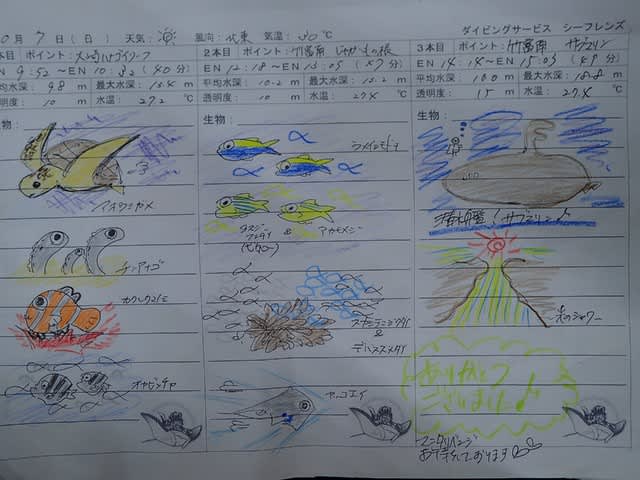 0月 7日(日) 天気: 風向: 北東 気温: 30℃
ダイビングサービス シーフレンズ
本目 ポイント: 大崎ハナゴイリーフ
EN 9:52〜EN 10:32 (40分)
平均水深: 9.8 m 最大水深: 15.4 m
透明度: 10 m 水温: 27.2 ℃
生物:
アオウミガメ
チンアナゴ
カクレクマノミ
オヤビッチャ
2本目 ポイント: 竹富南 じゃがいもの根
EN 12:18〜EN 13:05 (47分)
平均水深: 10.2 m 最大水深: 15.2 m
透明度: 10 m 水温: 27.4 ℃
生物:
ウメイロモドキ
&
アカモメジ
&
デバスズメダイ
ヤッコエイ
3本目 ポイント: 竹富南 サブマリン
EN 14:14〜EN 15:03 (49分)
平均水深: 10.0 m 最大水深: 18.8 m
透明度: 15 m 水温: 27.4 ℃
生物:
潜水艦!サブマリン♪
光のシャワー
ありがとう
ございました♪
お待ちしております